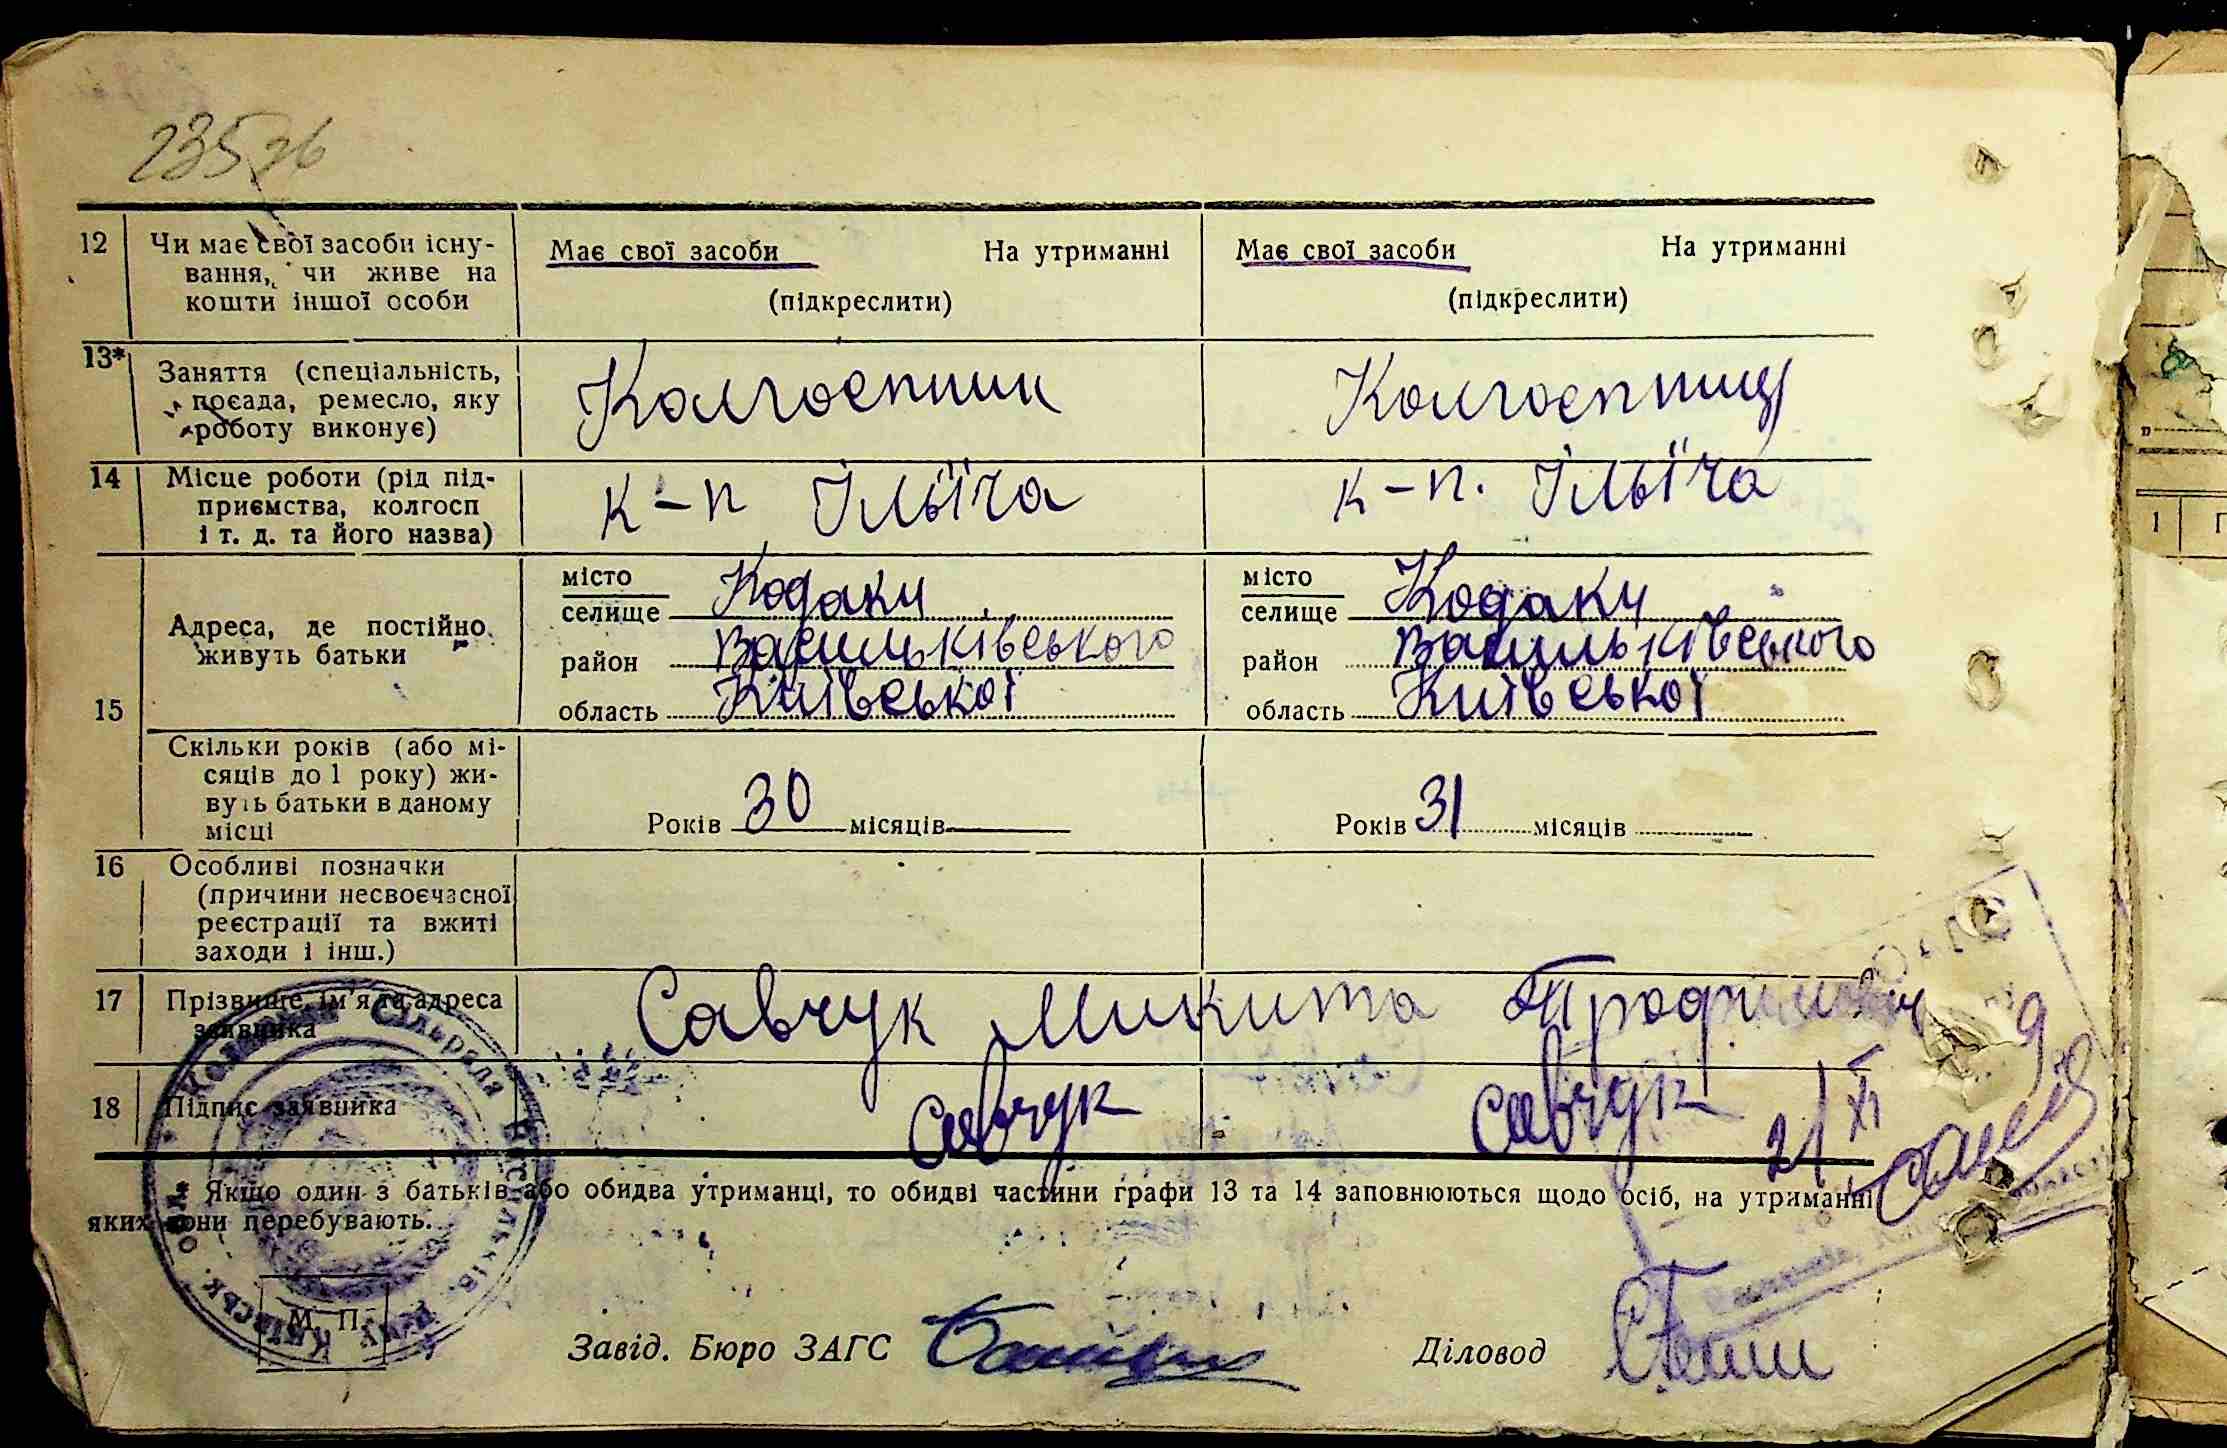 23536
12 Чи має свої засоби існу- Має свої засоби На утриманні Має свої засоби На утриманні
вання, чи живе на
кошти іншої особи (підкреслити) (підкреслити)
13* Заняття (спеціальність, Колгоспник Колгоспниц
посада, ремесло, яку
роботу виконує)
14 Місце роботи (рід під- к-п Ільїча к-п. Ільїча
приємства, колгосп
і т. д. та його назва)
15 Адреса, де постійно живуть батьки
місто
селище Кодаки
район Васильківського
область Київської
місто
селище Кодаки
район Васильківського
область Київської
Скільки років (або мі-
сяців до 1 року) жи-
вуть батьки в даному
місці
Років 30 місяців Років 31 місяців
16 Особливі позначки
(причини несвоєчасної
реєстрації та вжиті
заходи і інш.)
17 Прізвище, ім'я та адреса Савчук Микита Трофимович
заявника
18 Підпис заявника Савчук Савчук
21/XI
* Якщо один з батьків або обидва утриманці, то обидві частини графи 13 та 14 заповнюються щодо осіб, на утриманні
яких вони перебувають.
М. П.
Завід. Бюро ЗАГС Діловод
Сільрада
Київськ. обл.